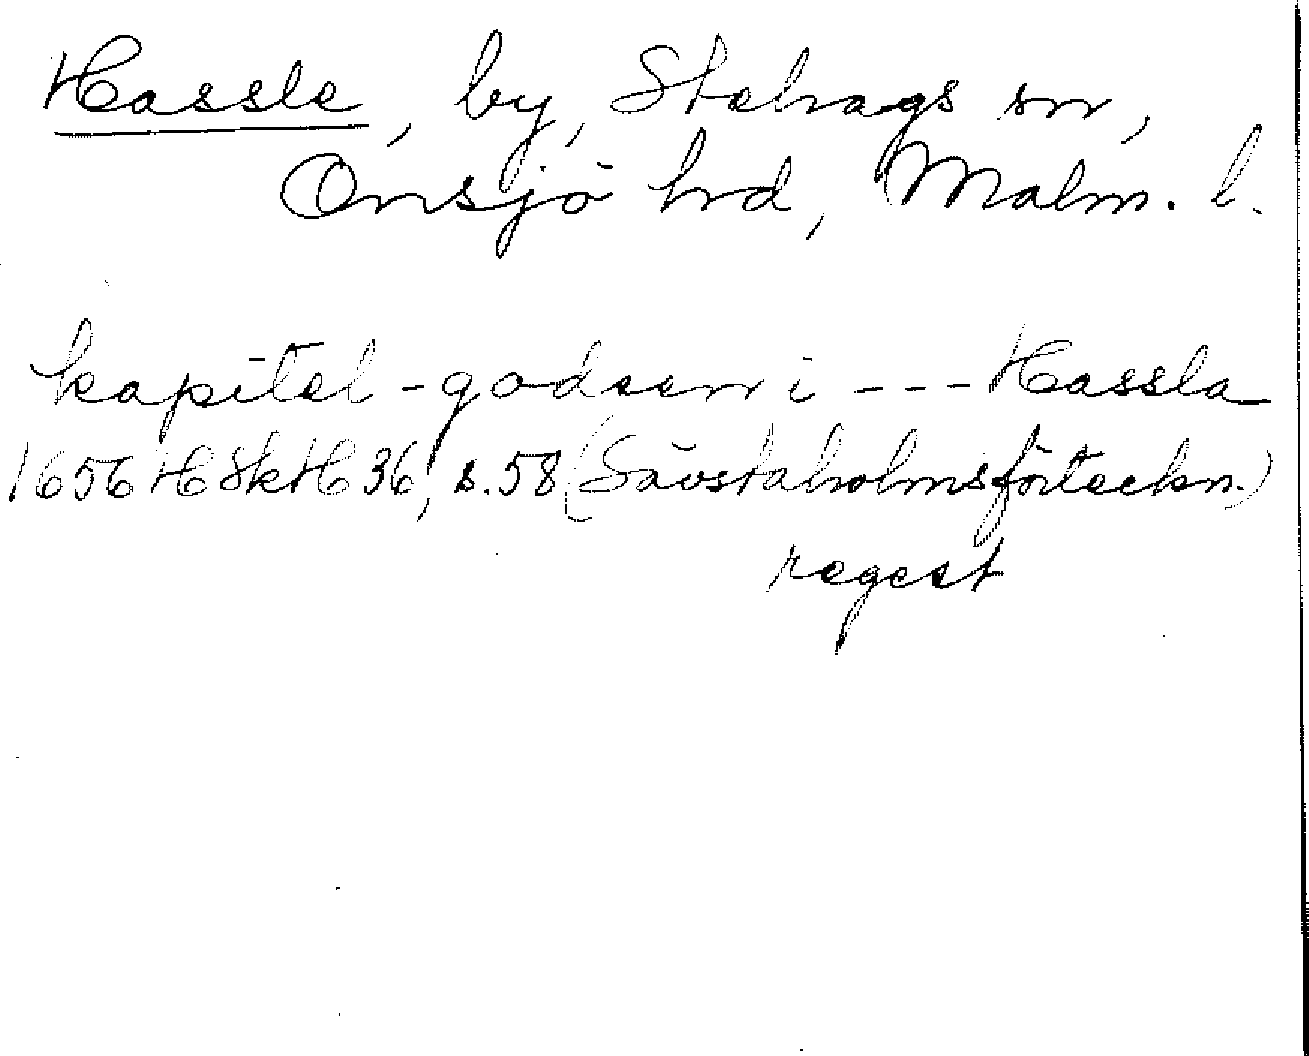 Hassle, by, Stehags sn,
Onsjö hrd, Malm. l.
kapitel-godsen i --- Hassla
1656 HSkH 36, s. 58 (Sävstaholmsförteckn.)
regest